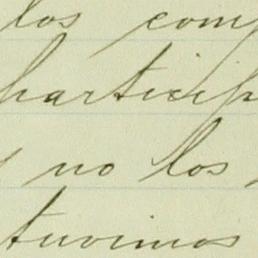 los com
particip
y no los
tuvimos